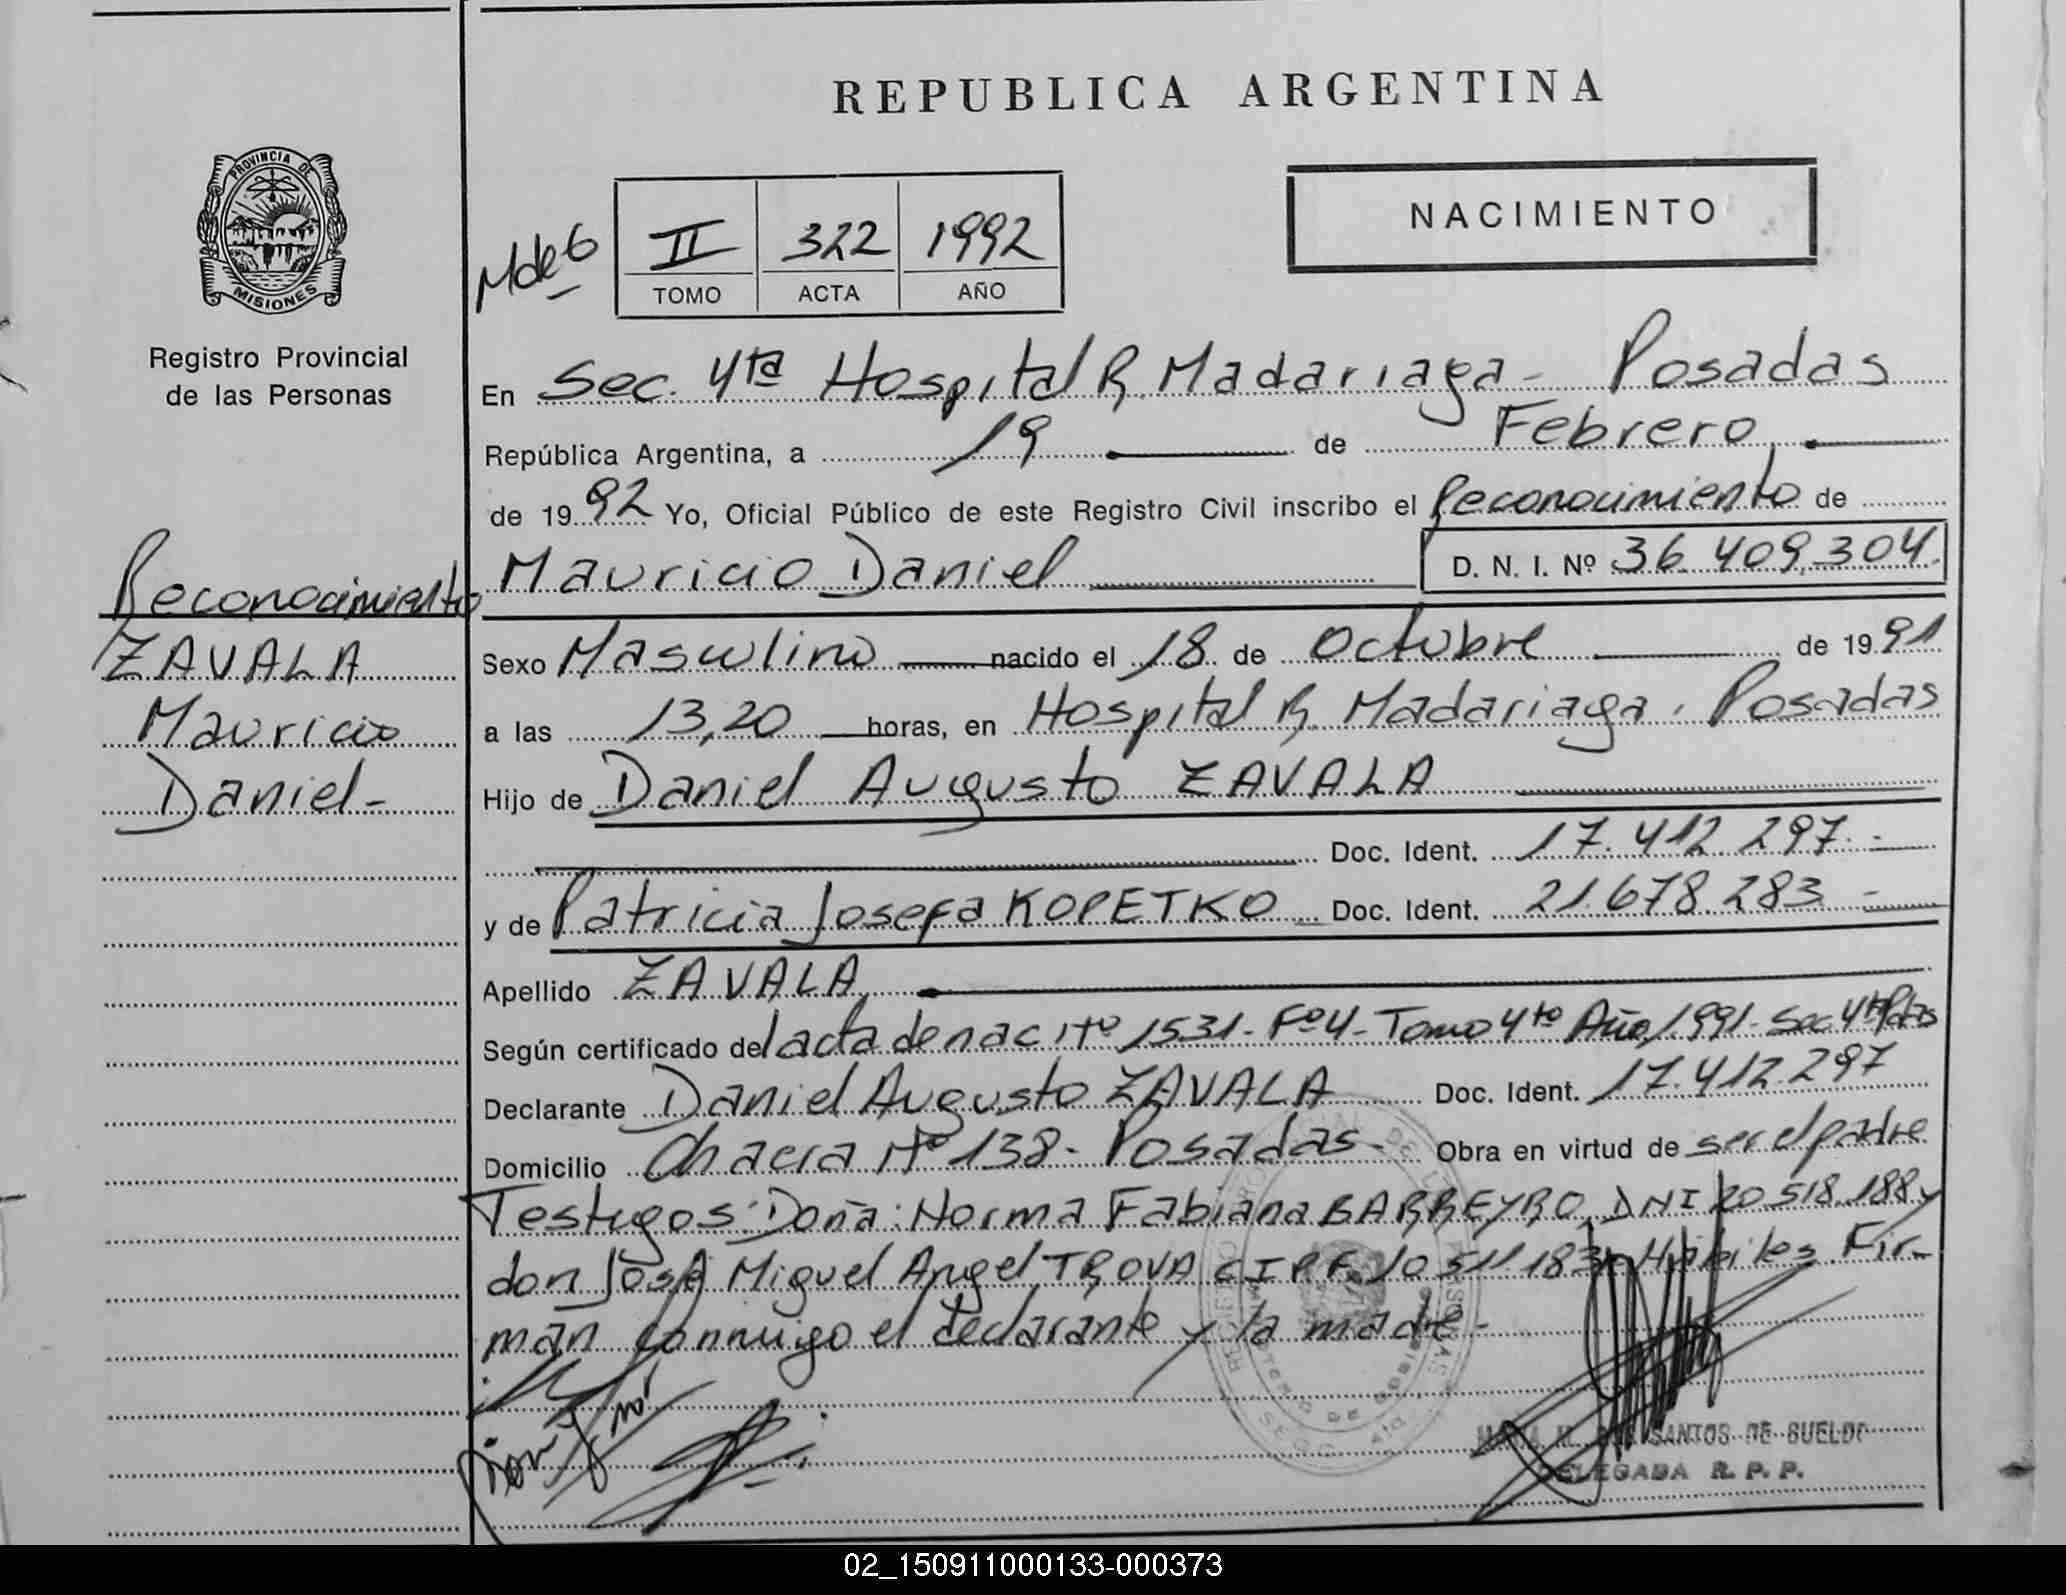 REPUBLICA ARGENTINA
PROVINCIA DE
MISIONES
Registro Provincial
de las Personas
II 322 1992
TOMO ACTA AÑO
NACIMIENTO
En Sec. 4ta Hospital R. Madariaga - Posadas
República Argentina, a 19 de Febrero
de 1992 Yo, Oficial Público de este Registro Civil inscribo el Reconocimiento de
Mauricio Daniel D. N. I. Nº 36.409.304.
Reconocimiento
ZAVALA
Mauricio
Daniel-
Sexo Masculino nacido el 18 de Octubre de 1991
a las 13,20 horas, en Hospital R. Madariaga. Posadas
Hijo de Daniel Augusto ZAVALA
Doc. Ident. 17.412.297.-
y de Patricia Josefa KOPETKO Doc. Ident. 21.678.283 -
Apellido ZAVALA
Según certificado del acta de nac Nº 1531- Fº 4- Tomo 4to Año 1991- Sec 4ta Pdas
Declarante Daniel Augusto ZAVALA Doc. Ident. 17.412.297
Domicilio Chacra Nº 138- Posadas- Obra en virtud de ser el padre
Testigos: Doña: Norma Fabiana BARREYRO, DNI 20 518.188 y
don José Miguel Angel TROVA CIPF. 10 511 183 Hábiles. Fir-
man conmigo el declarante y la madre-
SANTOS DE SUELDO
DELEGADA R. P. P.
02_150911000133-000373